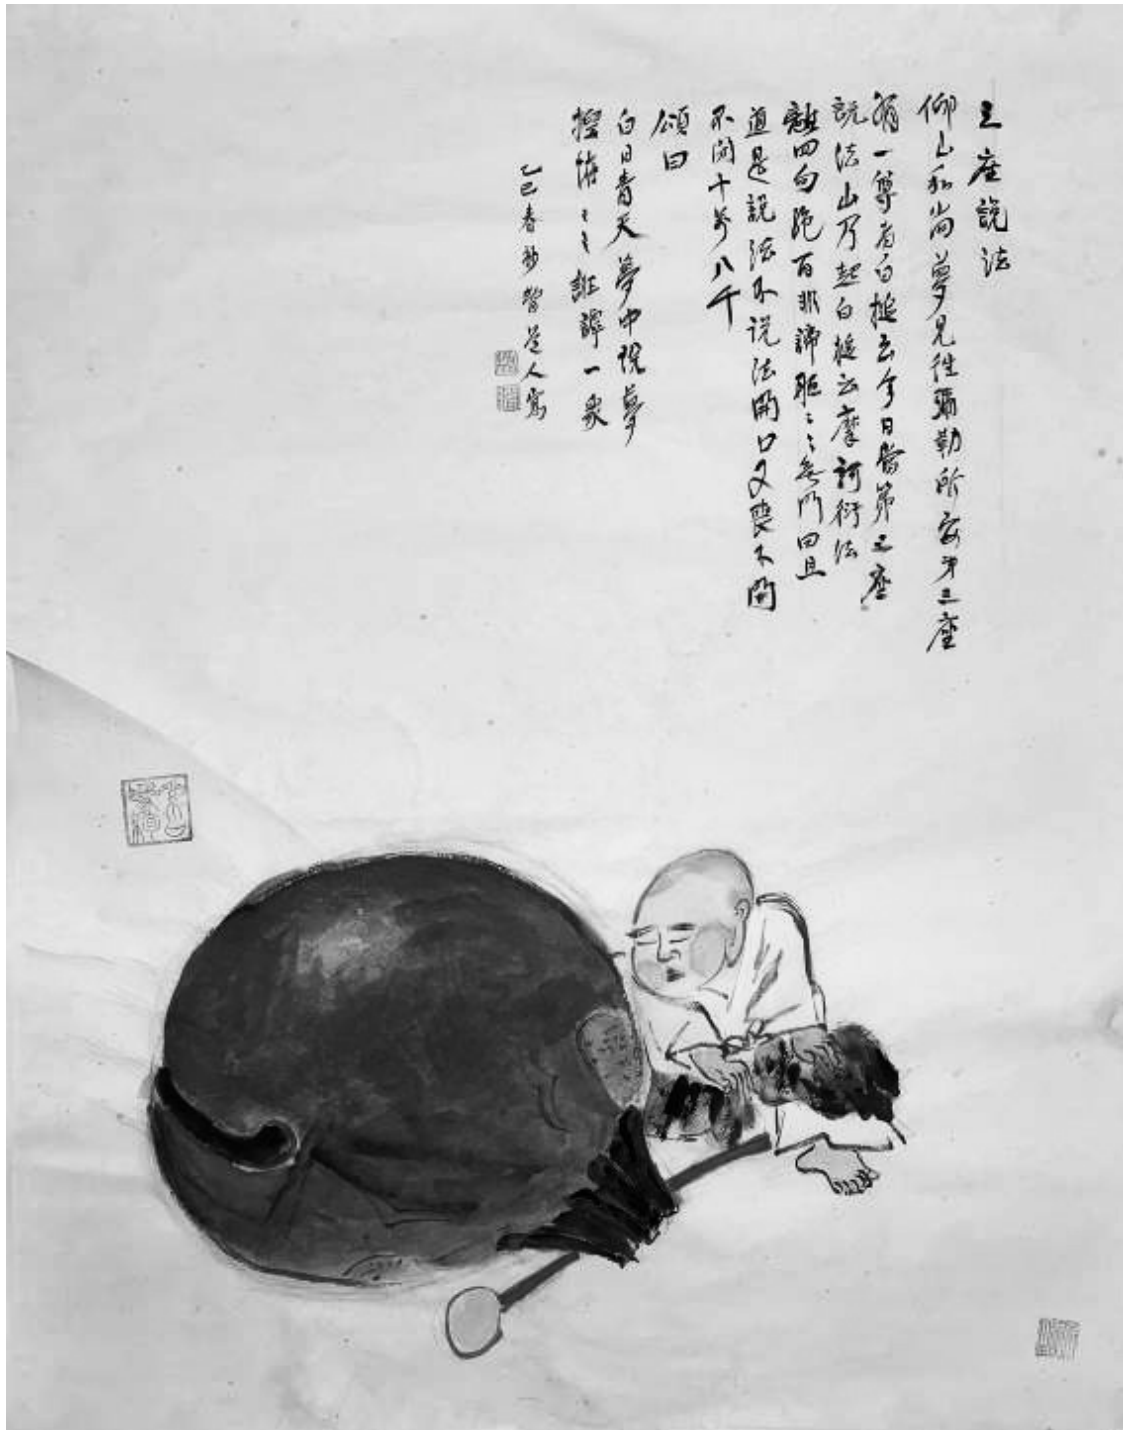 三座說法
仰山和尚夢見往彌勒所安第三座
有一尊者白槌云今日當第三座
說法山乃起白槌云摩訶衍法
離四句絕百非諦聽〻〻無門曰且
道是說法不說法開口又喪不開
不閉十萬八千
頌曰
白日青天夢中說夢
捏怪〻〻誑謼一衆
乙巳春道人寫